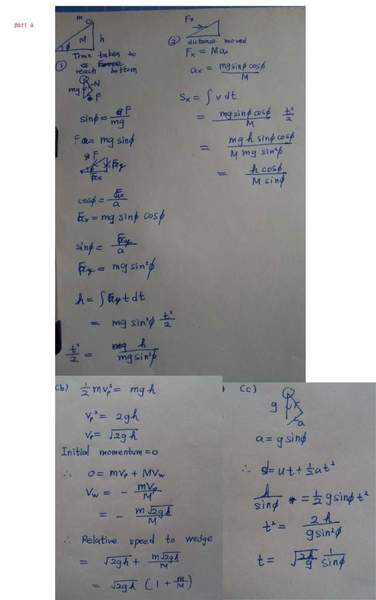 part a
m
M
h
φ
Time taken to
① reach bottom
N
mg
F
sinφ = F/mg
F = mg sinφ
cosφ = /a
= mg sinφ cosφ
sinφ = /a
= mg sin²φ
h = ∫ t dt
= mg sin²φ t²/2
t²/2 = h/mg sin²φ
② Fx
distance moved
Fx = Max
ax = mg sinφ cosφ/M
Sx = ∫ v dt
= mg sinφ cosφ/M t²/2
= mg h sinφ cosφ/M mg sin²φ
= h cosφ/M sinφ
(b) ½ mvp² = mgh
vp² = 2gh
vp = √2gh
Initial momentum = 0
∴ 0 = mvp + MVw
Vw = - mvp/M
= - m√2gh/M
∴ Relative speed to wedge
= √2gh + m√2gh/M
= √2gh (1 + m/M)
(c)
g
a
a = g sinφ
∴ s = ut + ½at²
h/sinφ = ½ g sinφ t²
t² = 2h/g sin²φ
t = √2h/g 1/sinφ